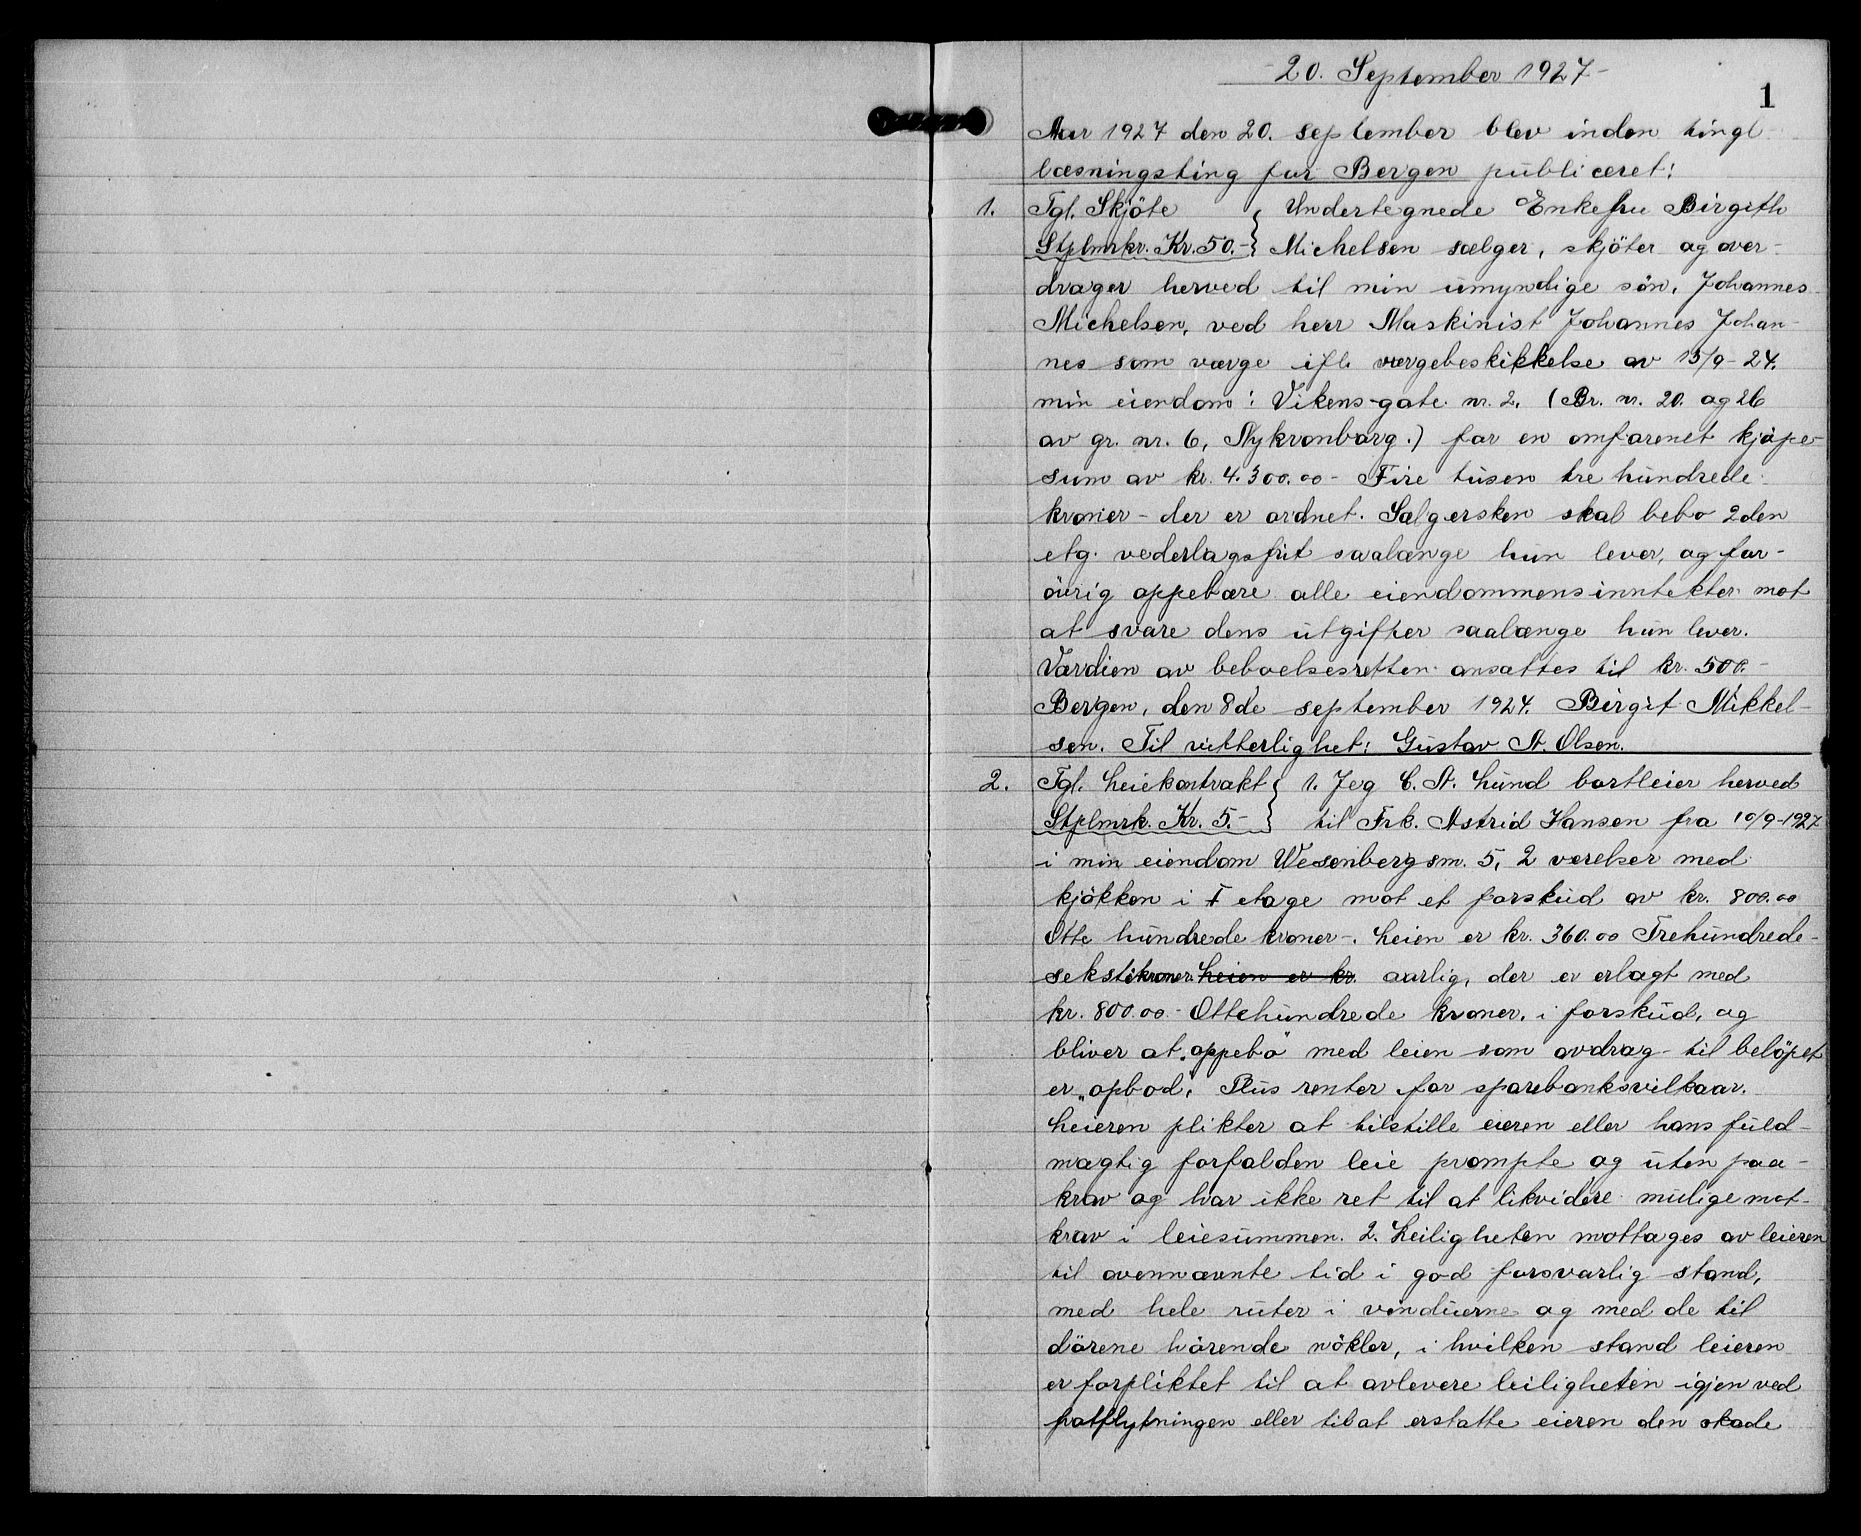 - 20. September 1927 -
1
Aar 1927 den 20. september blev inden tingl-
læsningsting for Bergen publiceret:
1. Tgl. Skjöte } Undertegnede Enkefru Birgith
Stplmrkr. Kr. 50.- } Michelsen sælger, skjöter og over-
drager herved til min umyndige sön, Johannes
Michelsen, ved herr Maskinist Johannes Johan-
nes som værge ifl. værgebeskikkelse av 13/9-24.
min eiendom: Vikens-gate nr. 2. (Br. nr. 20. og 26
av gr. nr. 6, Nykronborg.) for en omforenet kjøpe-
sum av kr. 4.300.00 - Fire tusen tre hundrede
kroner - der er ordnet. Sælgersken skal bebo 2den
etg. vederlagsfrit saalænge hun lever, og for-
övrig oppebære alle eiendommens inntekter mot
at svare dens utgifter saalænge hun lever.
Værdien av beboelsesretten ansattes til kr. 500.-
Bergen, den 8de september 1924. Birgit Mikkel-
sen. Til vitterlighet: Gustav A. Olsen.
2. Tgl. Leiekontrakt } 1. Jeg C. A. Lund bortleier herved
Stplmrk. Kr. 5.- } til Frk. Astrid Hansen fra 10/9-1927
i min eiendom Wesenbergsm. 5, 2 værelser med
kjökken i I etage mot et forskud av kr. 800.00
Otte hundrede kroner -. Leien er kr. 360.00 Trehundrede-
sekstikroner. Leien er kr. aarlig, der er erlagt med
kr. 800.00 - Ottehundrede kroner. i forskud, og
bliver at "oppebo" med leien som avdrag - til belöpet
er "opbod". Plus renter for sparebanksvilkaar.
Leieren plikter at tilstille eieren eller hans fuld-
mægtig forfalden leie prompte og uten paa-
krav og har ikke ret til at likvidere mulige mot-
krav i leiesummen. 2. Leiligheten mottages av leieren
til ovennævnte tid i god forsvarlig stand,
med hele ruter i vinduerne og med de til
dörene hörende nökler, i hvilken stand leieren
er forpliktet til at avlevere leiligheten igjen ved
fratflytningen eller til at erstatte eieren den skade